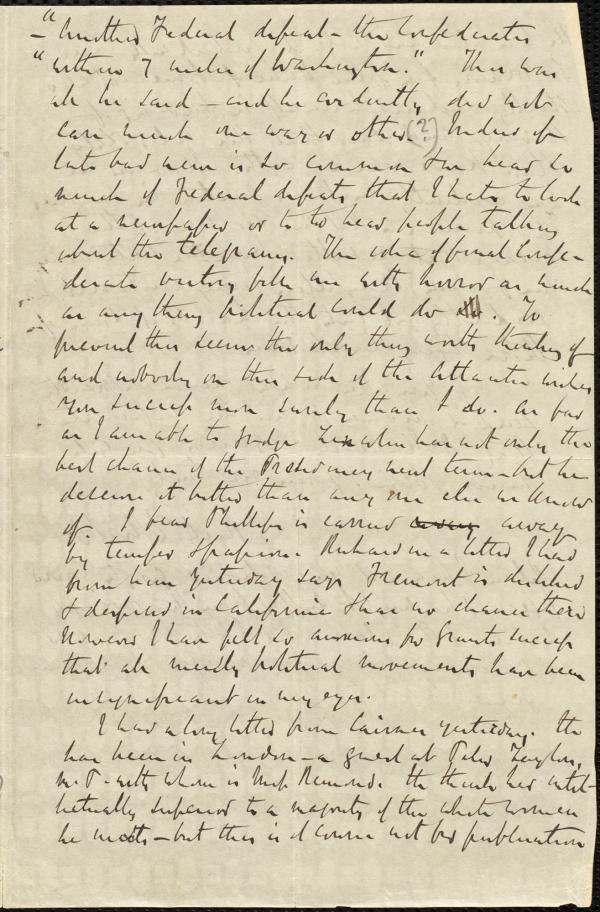 — "Another Federal defeat — the Confederates
"within 7 miles of Washington." That was
all he said — and he evidently did not
care much one way or other. (?) Indeed of
late bad news is so common & we hear so
much of Federal defeats that I hate to look
at a newspaper or to to hear people talking
about the telegrams. The idea of final Confe-
derate victory fills me with horror as much
as any thing political could do. To
prevent this seems the only thing worth thinking of
and nobody on this side of the Atlantic wishes
you success more surely than I do. As far
as I am able to judge Lincoln has not only the
best chance of the Presidency next term — but he
deserves it better than any one else we know
of. I fear Phillips is carried away away
by temper & passion. Richard in a letter I had
from him yesterday says Fremont is disliked
& despised in California & has no chance there
However I have felt so anxious for Grants success
that all merely political movements have been
insignificant in my eyes.
I had a long letter from Cairnes yesterday. He
has been in London — a guest at Peter Taylor,
M.P. with whom is Miss Remond. He thinks her intel-
lectually superior to a majority of the white women
he meets — but this is of course not for publication